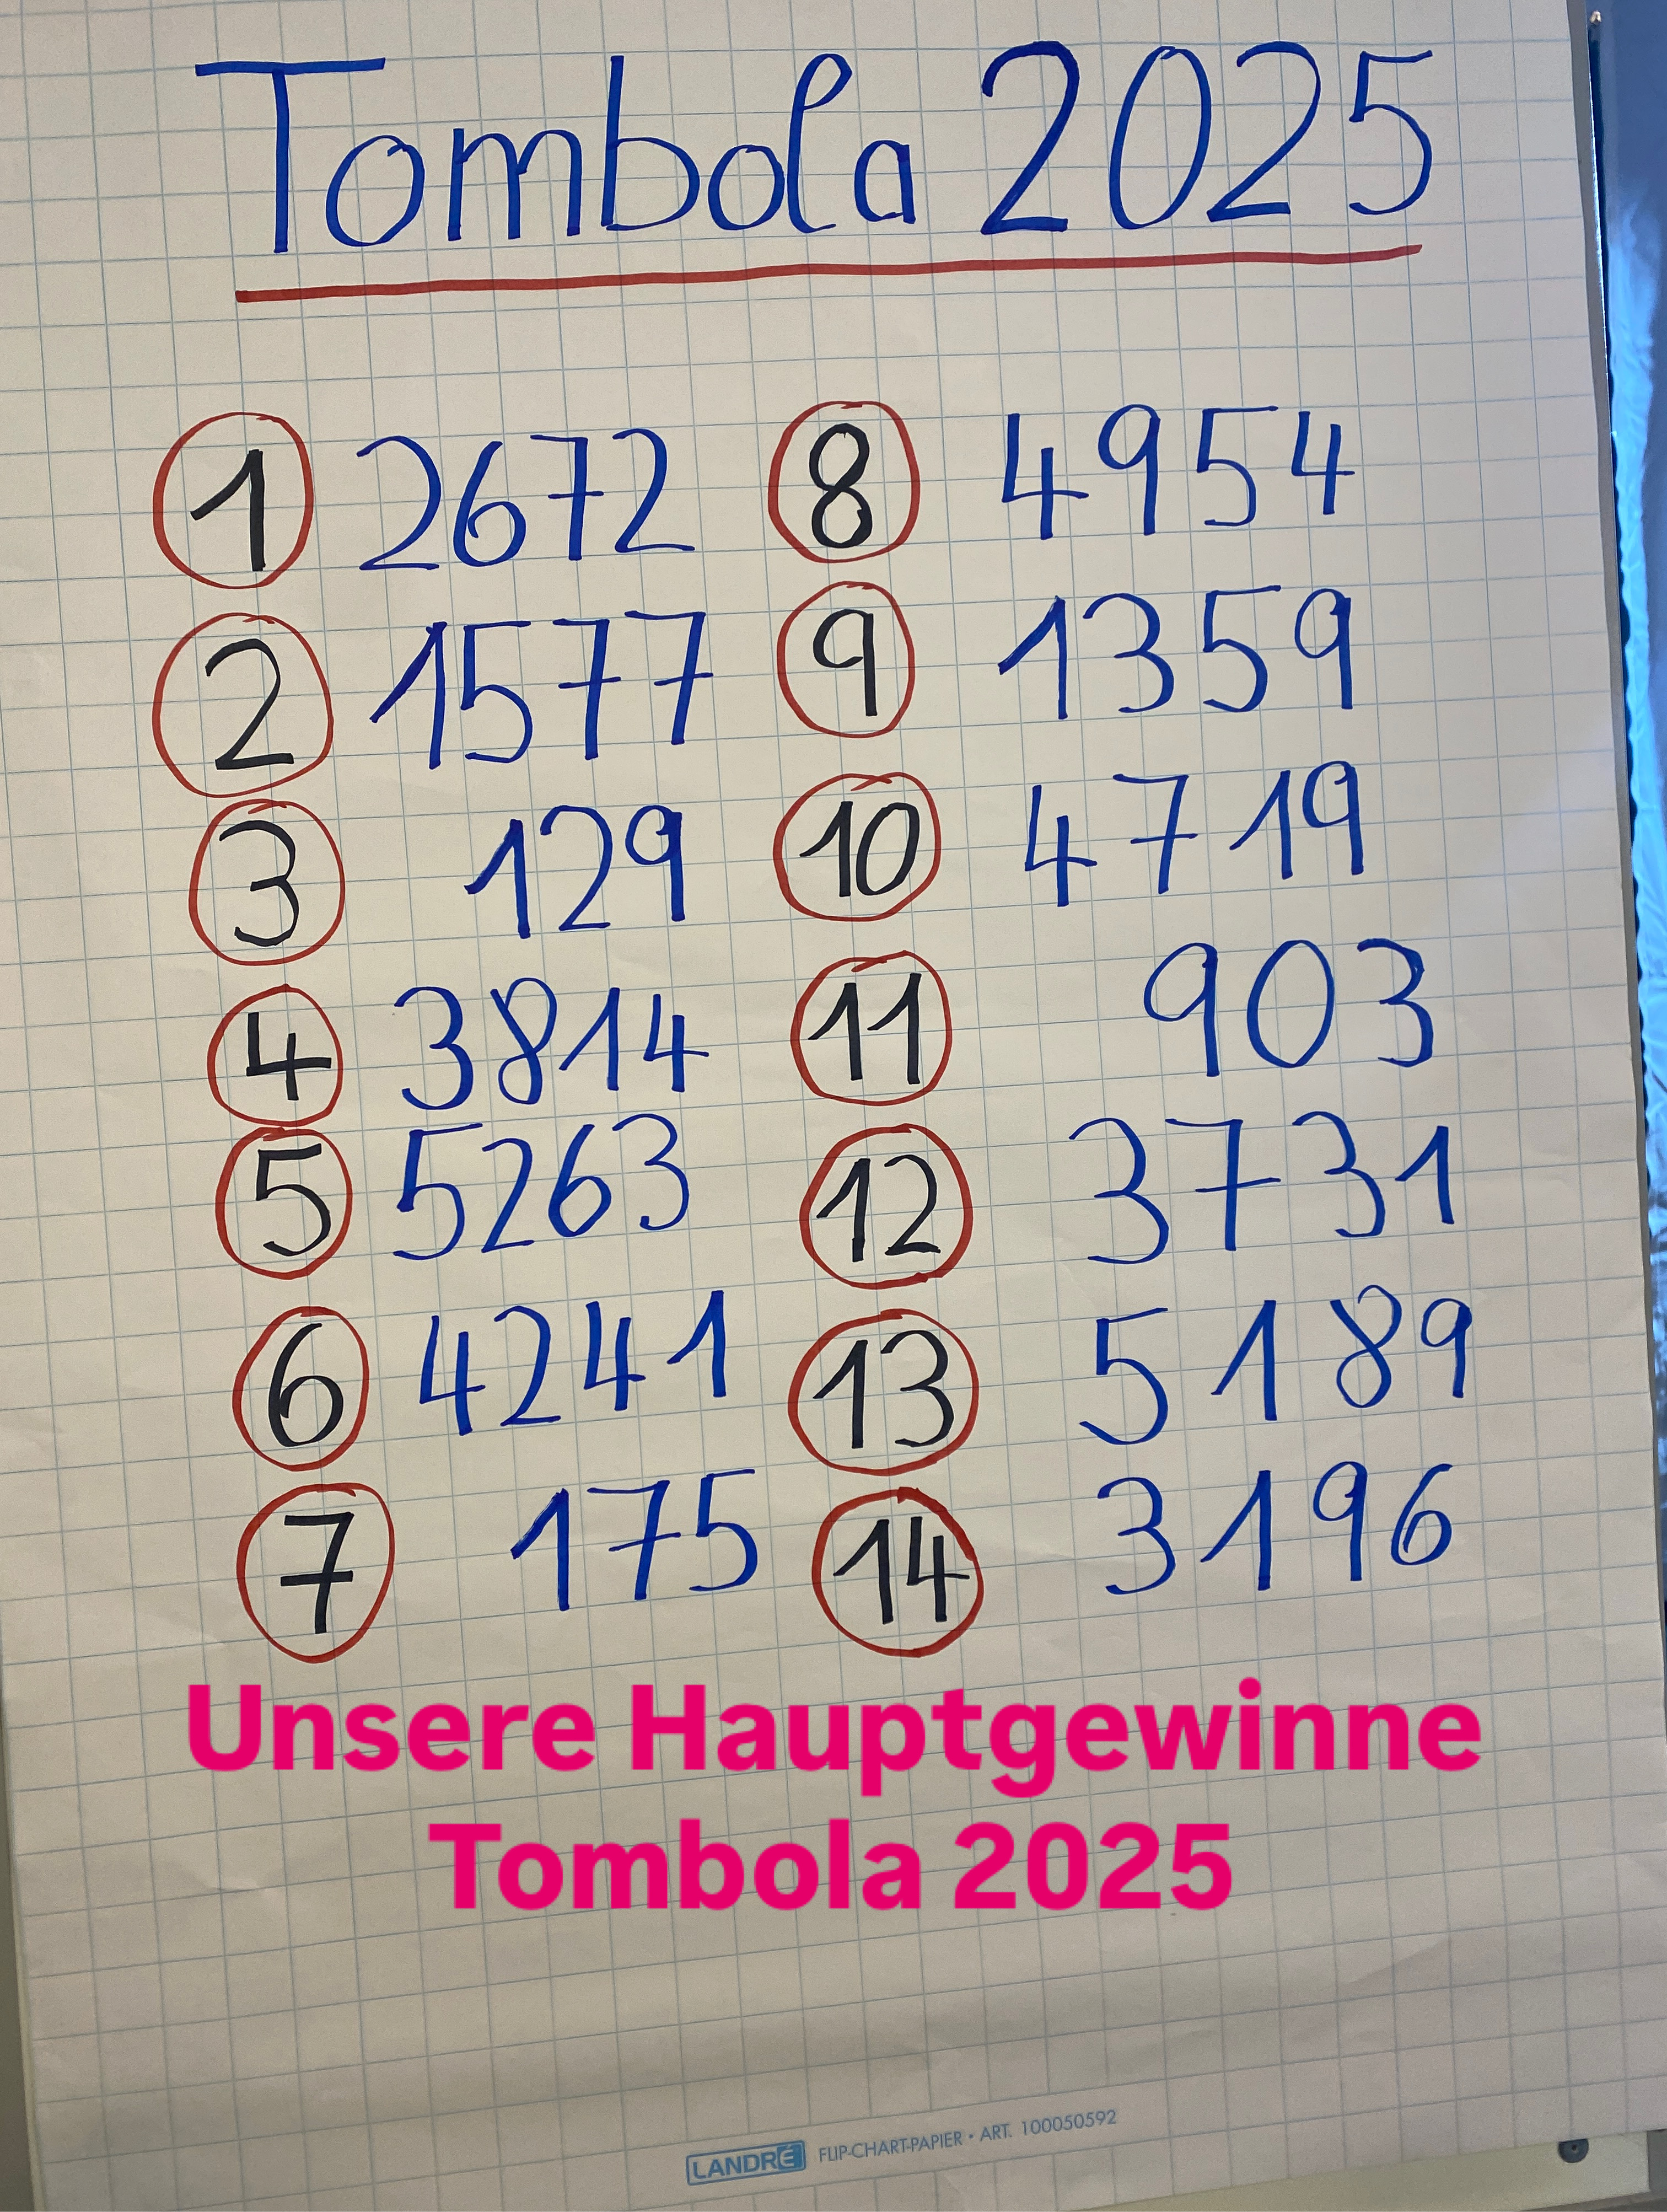 Tombola 2025
1 2672
2 1577
3 129
4 3814
5 5263
6 4241
7 175
8 4954
9 1359
10 4719
11 903
12 3731
13 5189
14 3196
Unsere Hauptgewinne
Tombola 2025
LANDRÉ FLIP-CHART-PAPIER • ART. 100050592